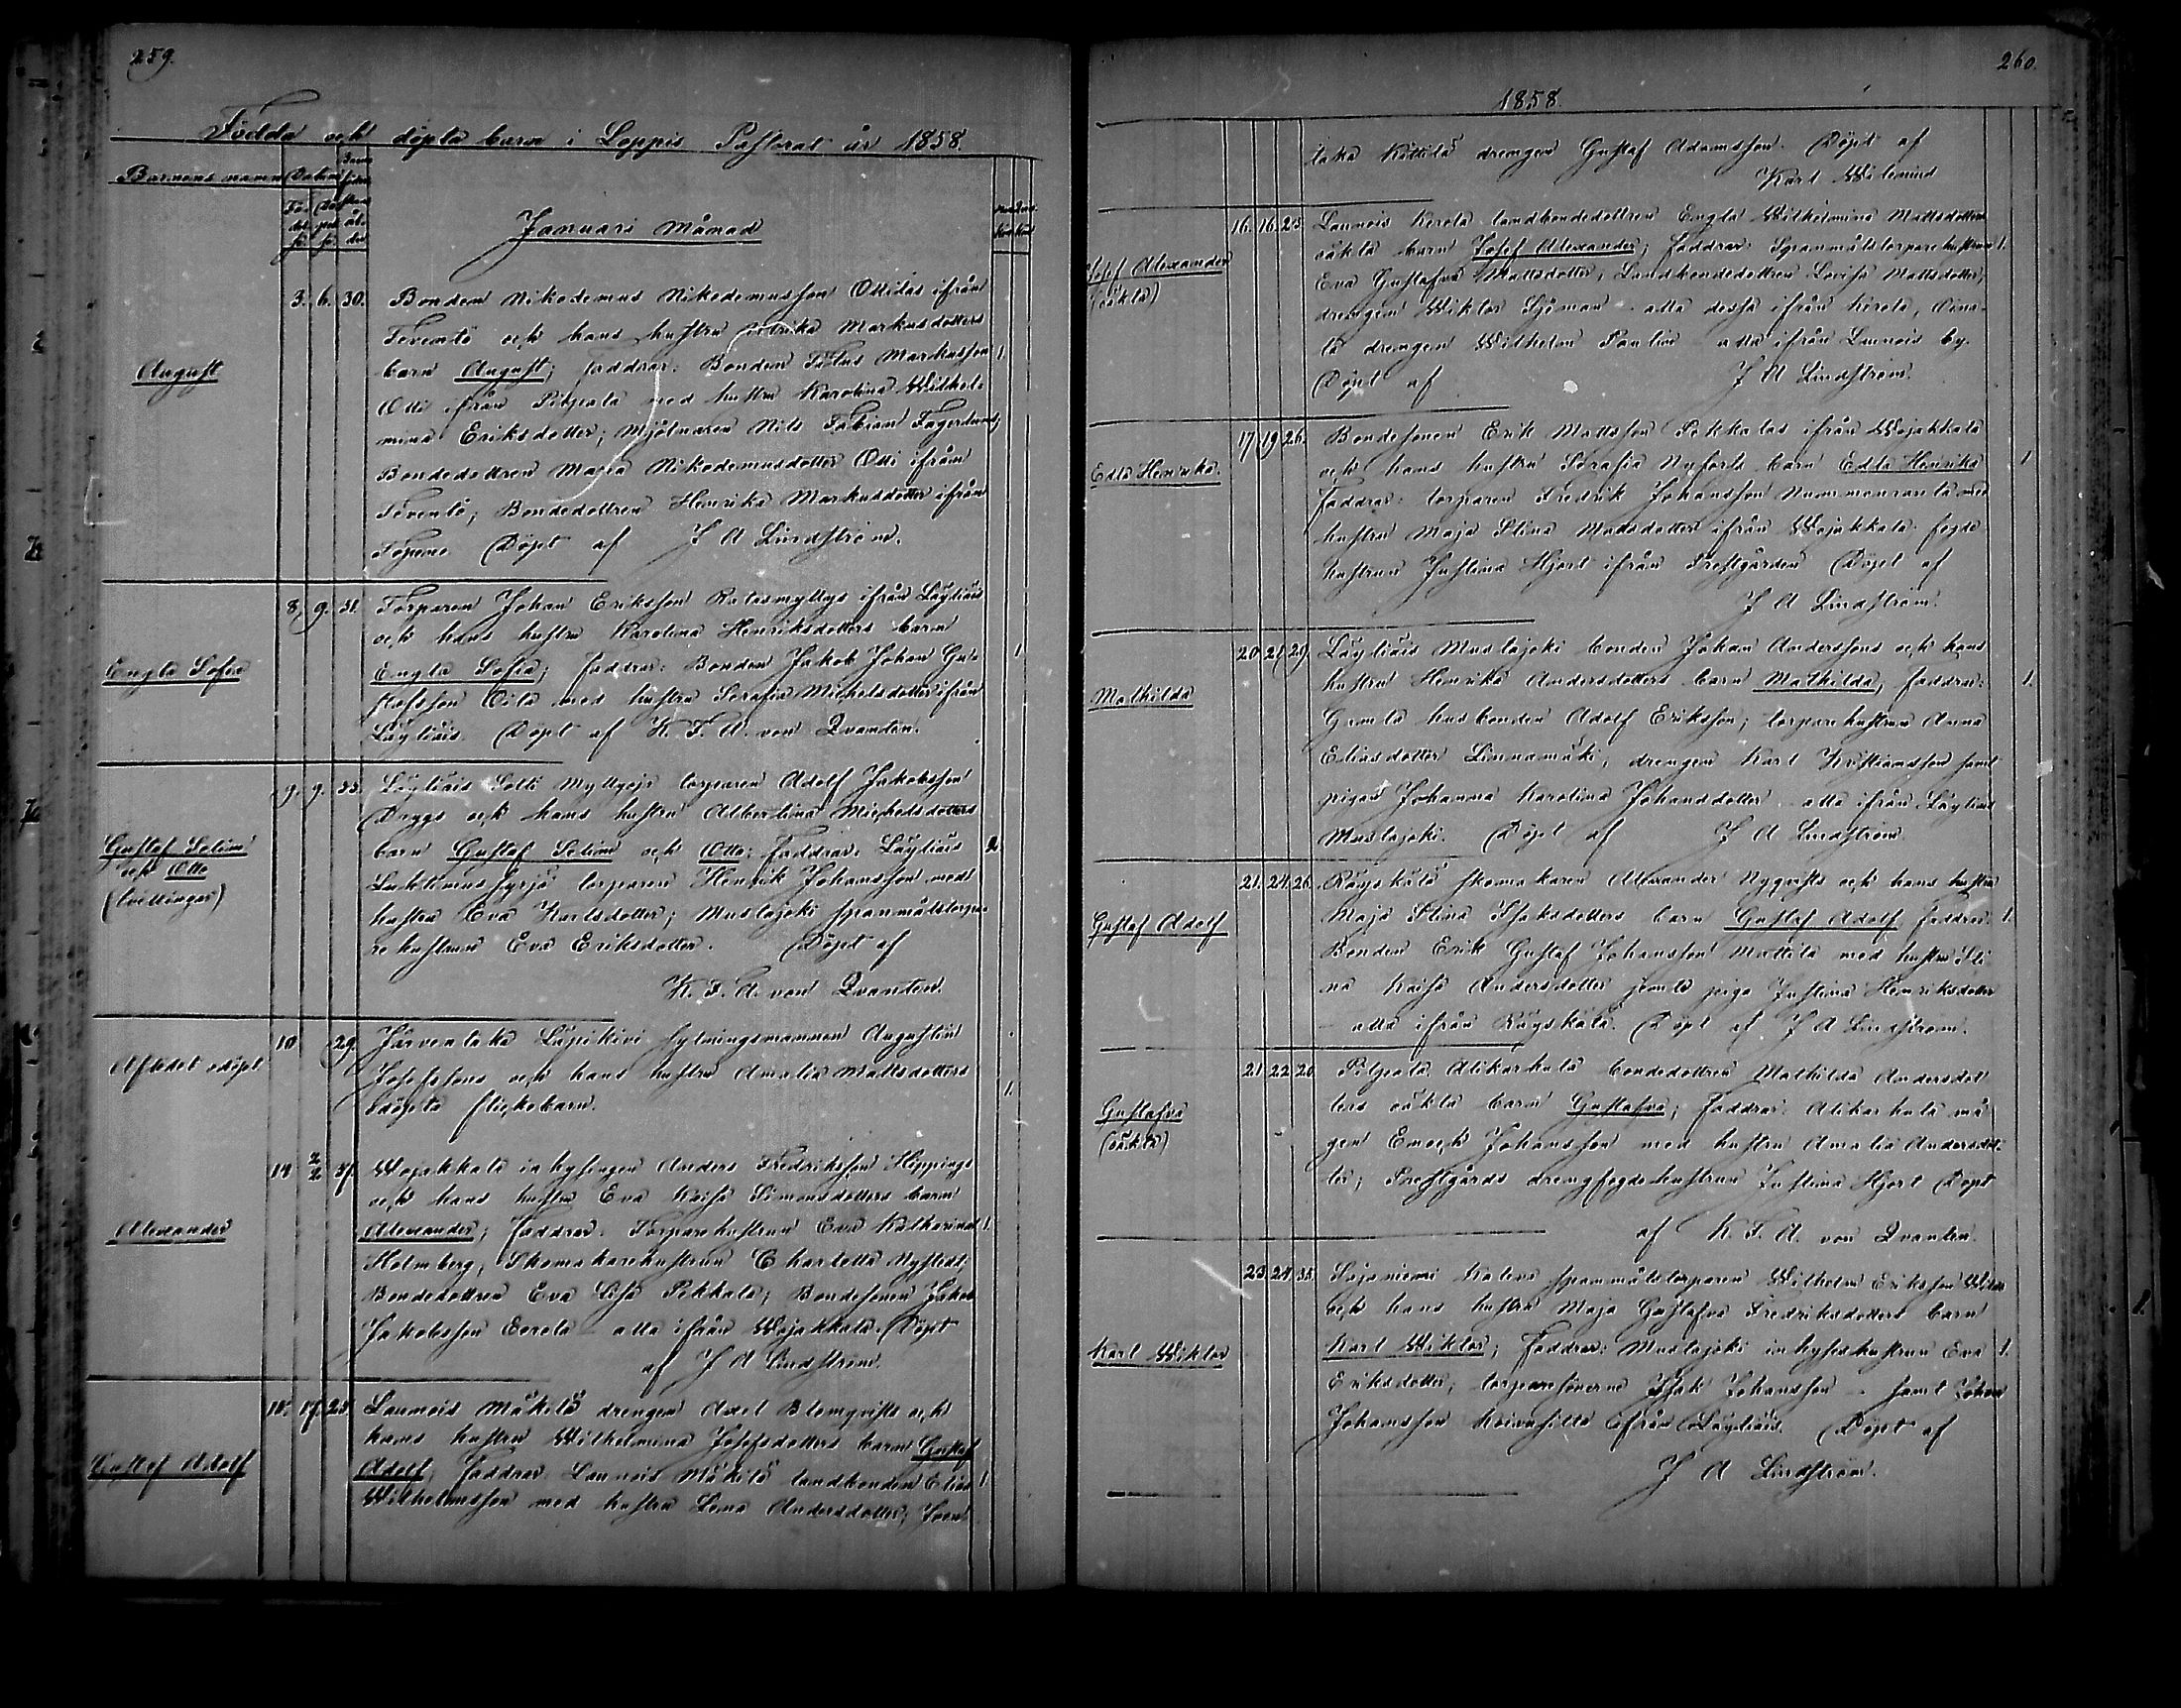 259.
Födda och döpta barn i Loppis Pastorat år 1858.
Barnens namn
Januari Månad
August
3. 6. 30. Bonden Nikodemus Nikodemusson Ottilas ifrån
Teventö och hans hustru Markusdotters
barn August; faddrar: Bonden Markusson 1.
Otti ifrån Pilpala med hustru Karolina Wilhel-
mina Eriksdotter; Mjölnaren Nils Fabian Fagerlund;
Bondedottren Maria Nikodemusdotter Otti ifrån
Teventö; Bondedottren Henrika Markusdotter ifrån
Topeno Döpt af J A Lindström.
Engla Sofia
8. 9. 31. Torparen Johan Eriksson Ratasmyllys ifrån Läyliäis
och hans hustru Karolina Henriksdotters barn
Engla Sofia; faddrar: Bonden Jakob Johan Gu- 1
stafsson med hustru Serafia Michelsdotter ifrån
Läyliäis. Döpt af K. F. A. von Qvanten.
Gustaf Selim
och Otto
(tvillingar)
9. 9. 33. Läyliäis torparen Adolf Jakobsson
och hans hustru Albertina Michelsdotters
barn Gustaf Selim och Otto; Faddrar: Läyliäis 2
torparen Henrik Johansson med
hustru Eva Karlsdotter; Muslajoki spanmålstorpa-
re hustrun Eva Eriksdotter. Döpt af
K. F. A. von Qvanten.
Afledet odöpt
10 29. Järventaka Läpikivi hytningsmannen Augustin
Josefssons och hans hustru Amalia Mattsdotters
odöpta flickobarn. 1.
Alexander
14 2/2 37. Wojakkala inhysingen Anders Fredriksson Hippings
och hans hustru Eva Kaisa Simonsdotters barn
Alexander; faddrar: Torparehustrun Eva Katharina 1.
Holmberg, Skomakarehustrun Charlotta Nystedt;
Bondedottren Eva Lisa Pekkala; Bondesonen Jakob
Jakobsson Eerola - alla ifrån Wojakkala. Döpt
af J A Lindström.
Gustaf Adolf
17. 25. Launois Mäkilä drengen Axel Blomqvists och
hans hustru Wilhelmina Josefsdotters barn Gustaf
Adolf; faddrar Launois Mäkilä landbonden Elias 1
Wilhelmsson med hustru Lena Andersdotter;
260.
1858.
Kittilä drengen Gustaf Adamsson. Döpt af
Karl
Josef Alexander
(oäkta)
16. 16. 25. Launois Kerola landbondedottren Engla Wilhelmina Mattsdotters
oäkta barn Josef Alexander; faddrar Spanmålstorpare hustrun 1.
Eva Gustafva Mattsdotter, Landbondedottren Lovisa Mattsdotter;
drengen Wiktor Sjöman - alla dessa ifrån Kerola,
la drengen Wilhelm alla ifrån Launois by.
Döpt af J A Lindström.
Edla Henrika.
17 19 26. Bondesonen Erik Mattsson Pekkalas ifrån Wojakkala
och hans hustru Serafia barn Edla Henrika 1
faddrar: torparen Fredrik Johansson med
hustru Maja Stina Madsdotter ifrån Wojakkala; fogde
hustrun Justina Hjort ifrån Prestgården Döpt af
J A Lindström.
Mathilda
20 21 29 Läyliäis Muslajoki bonden Johan Anderssons och hans
hustru Henrika Andersdotters barn Mathilda; faddrar: 1.
Gamla husbonden Adolf Eriksson; torpare hustrun Anna
Eliasdotter Linnamäki, drengen Karl Kristiansson samt
pigan Johanna Karolina Johansdotter - alla ifrån Läyliäis
Muslajoki. Döpt af J A Lindström
Gustaf Adolf
21. 24. 26. Räyskälä skomakaren Alexander Nyqvists och hans hustru
Maja Stina Isaksdotters barn Gustaf Adolf faddrar: 1.
Bonden Erik Gustaf Johansson Mattila med hustru Sti-
na Kaisa Andersdotter jemte piga Justina Henriksdotter
- alla ifrån Räyskälä. Döpt af J A Lindström.
Gustafva
(oäkta)
21. 22 20 Pilpala Alikarhula bondedottren Mathilda Andersdot-
ters oäkta barn Gustafva; faddrar: Alikarhula må-
gen Enock Johansson med hustru Amalia Andersdot-
ter; Prestgårds drengfogdehustrun Justina Hjort Döpt
af K. F. A. von Qvanten.
Karl Wiktor
23. 24. 35. Sajaniemi spanmålstorparen Wilhelm Eriksson
och hans hustru Maja Gustafva Fredriksdotters barn
Karl Wiktor; faddrar: Muslajoki inhyseshustrun Eva 1.
Eriksdotter; torparesönerne Isak Johansson - samt Johan
Johansson ifrån Läyliäis. Döpt af
J A Lindström.